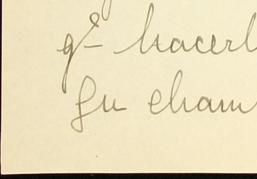 qe hacerl
Su cham